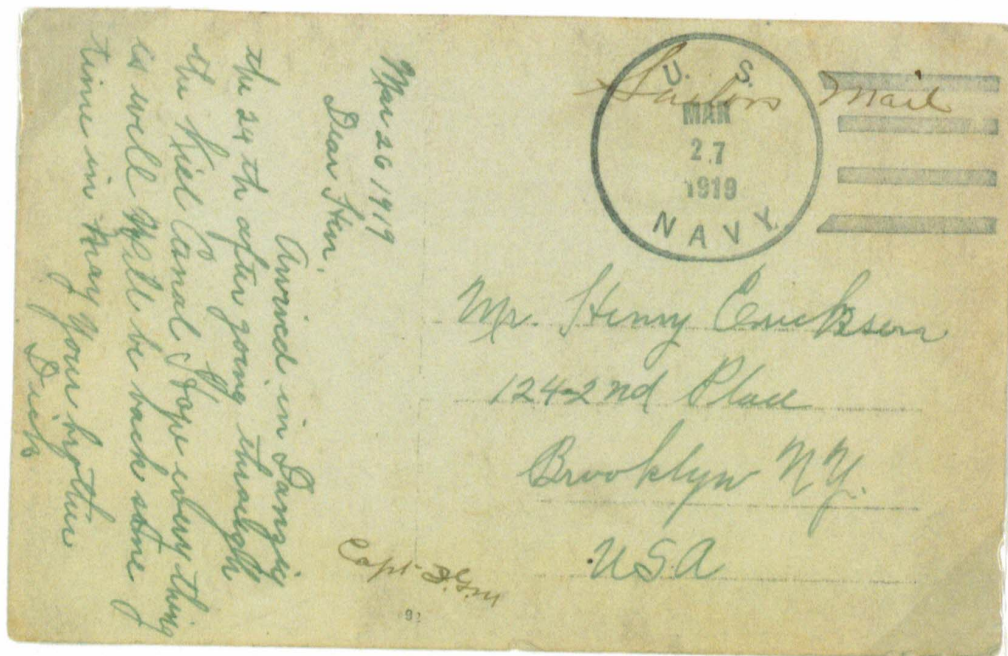 Mar 26 1919
Dear Hen.
Arrived in Danzig
the 24th after going through
the Kiel Canal I hope every thing
is well Will be back some
time in May Your brother
Dick
Sailors Mail
U. S.
MAR
27
1919
NAVY
Mr. Henry Erickson
124-2nd Place
Brooklyn NY.
USA
Capt